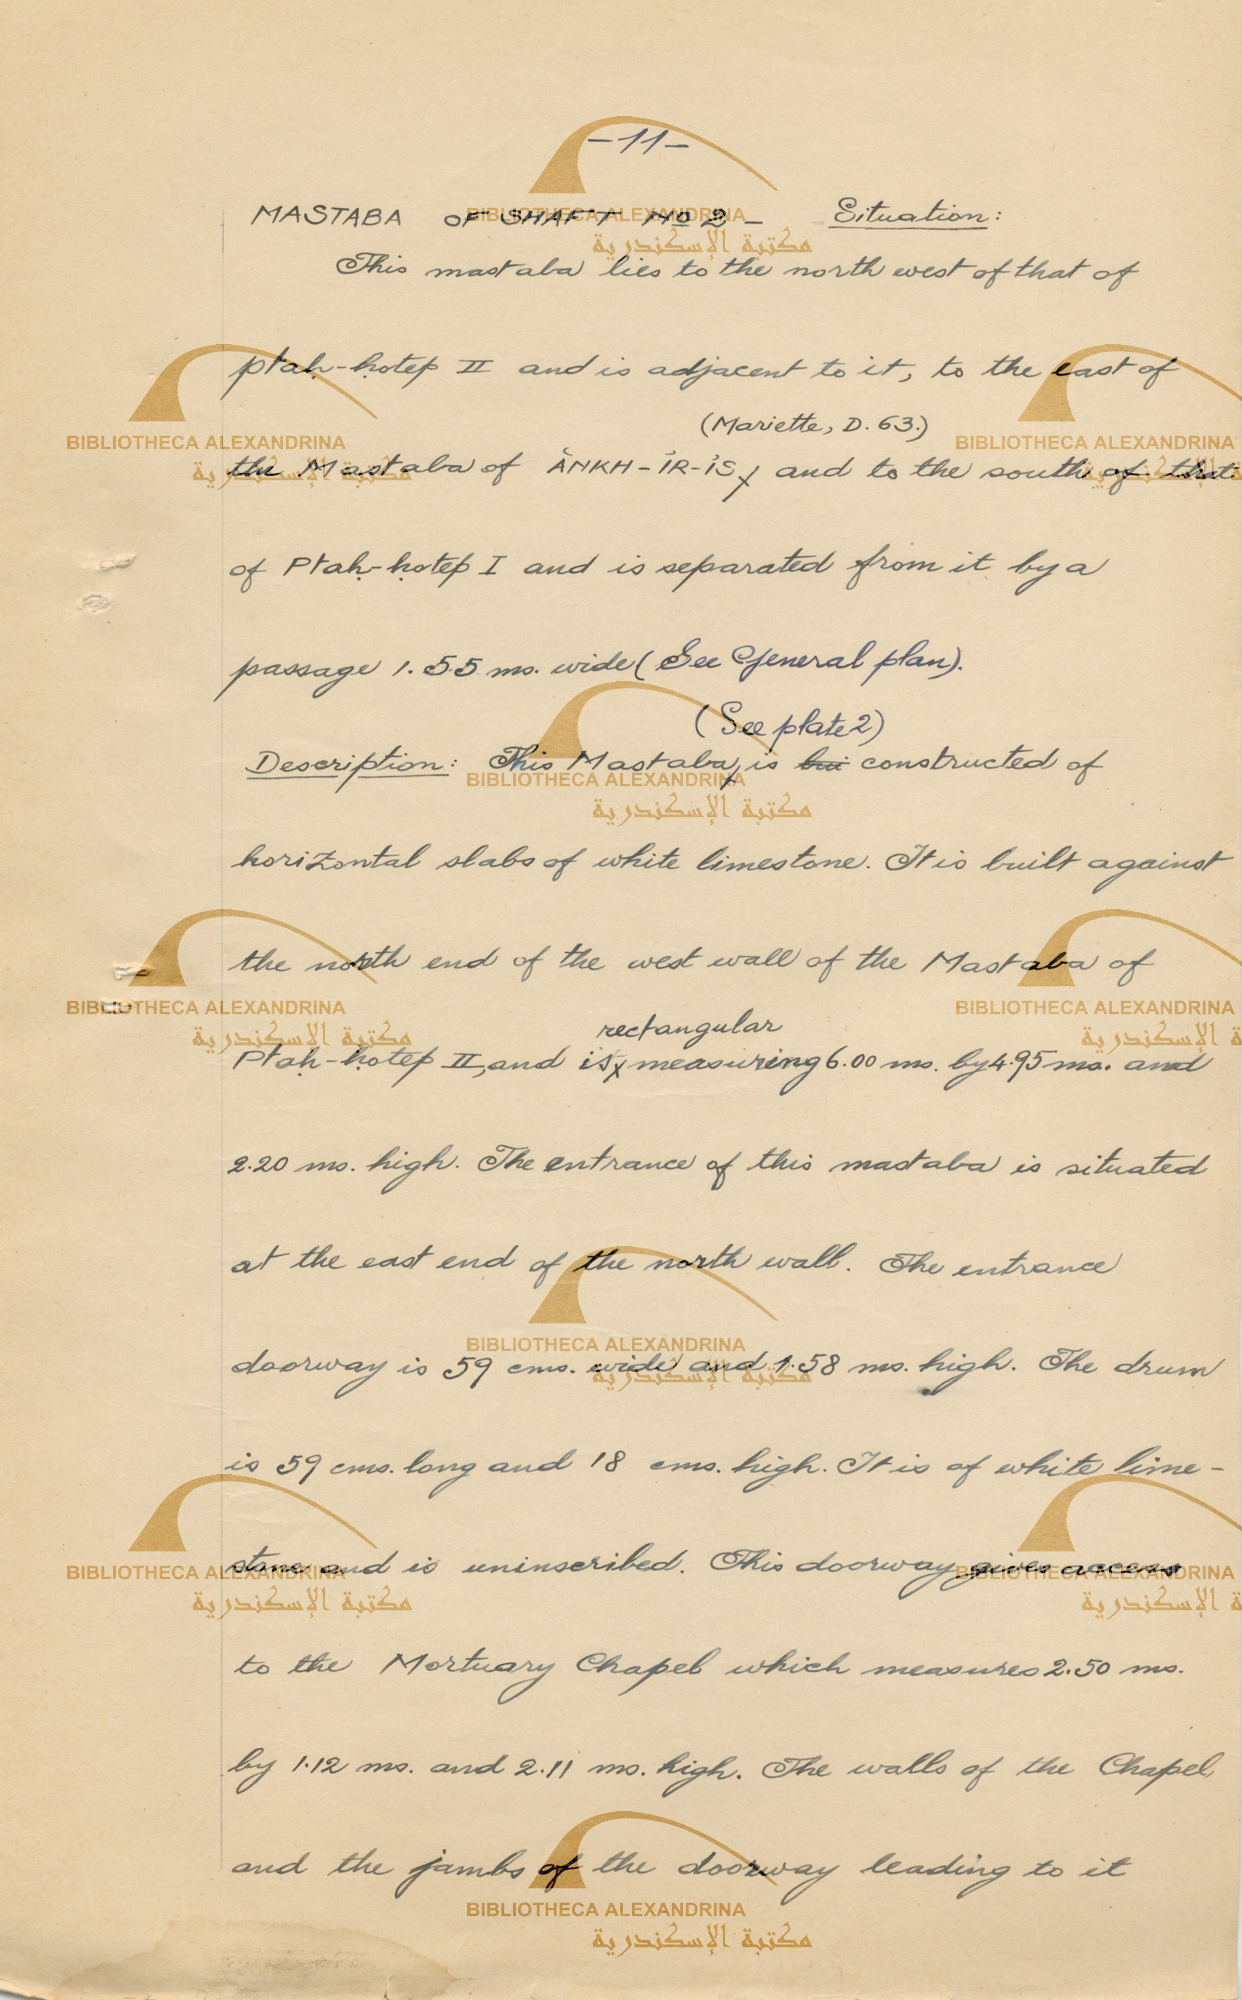 -11-
MASTABA OF SHAFT No 2 - Situation:
This mastaba lies to the north west of that of
ptaḥ-ḥotep II and is adjacent to it, to the east of
(Mariette, D. 63.)
the Mastaba of ÀNKH-ỈR-ỈS, and to the south of that
of Ptaḥ-ḥotep I and is separated from it by a
passage 1.55 ms. wide (See General plan).
(See plate 2)
Description: This Mastaba, is bui constructed of
horizontal slabs of white limestone. It is built against
the north end of the west wall of the Mastaba of
rectangular
Ptaḥ-ḥotep II, and is measuring 6.00 ms. by 4.95 ms. and
2.20 ms. high. The entrance of this mastaba is situated
at the east end of the north wall. The entrance
doorway is 59 cms. wide and 1.58 ms. high. The drum
is 59 cms. long and 18 cms. high. It is of white lime-
stone and is uninscribed. This doorway gives access
to the Mortuary Chapel which measures 2.50 ms.
by 1.12 ms. and 2.11 ms. high. The walls of the Chapel,
and the jambs of the doorway leading to it
BIBLIOTHECA ALEXANDRINA
مكتبة الإسكندرية
BIBLIOTHECA ALEXANDRINA
مكتبة الإسكندرية
BIBLIOTHECA ALEXANDRINA
مكتبة الإسكندرية
BIBLIOTHECA ALEXANDRINA
مكتبة الإسكندرية
BIBLIOTHECA ALEXANDRINA
مكتبة الإسكندرية
BIBLIOTHECA ALEXANDRINA
BIBLIOTHECA ALEXANDRINA
مكتبة الإسكندرية
BIBLIOTHECA ALEXANDRINA
مكتبة الإسكندرية
BIBLIOTHECA ALEXANDRINA
BIBLIOTHECA ALEXANDRINA
مكتبة الإسكندرية